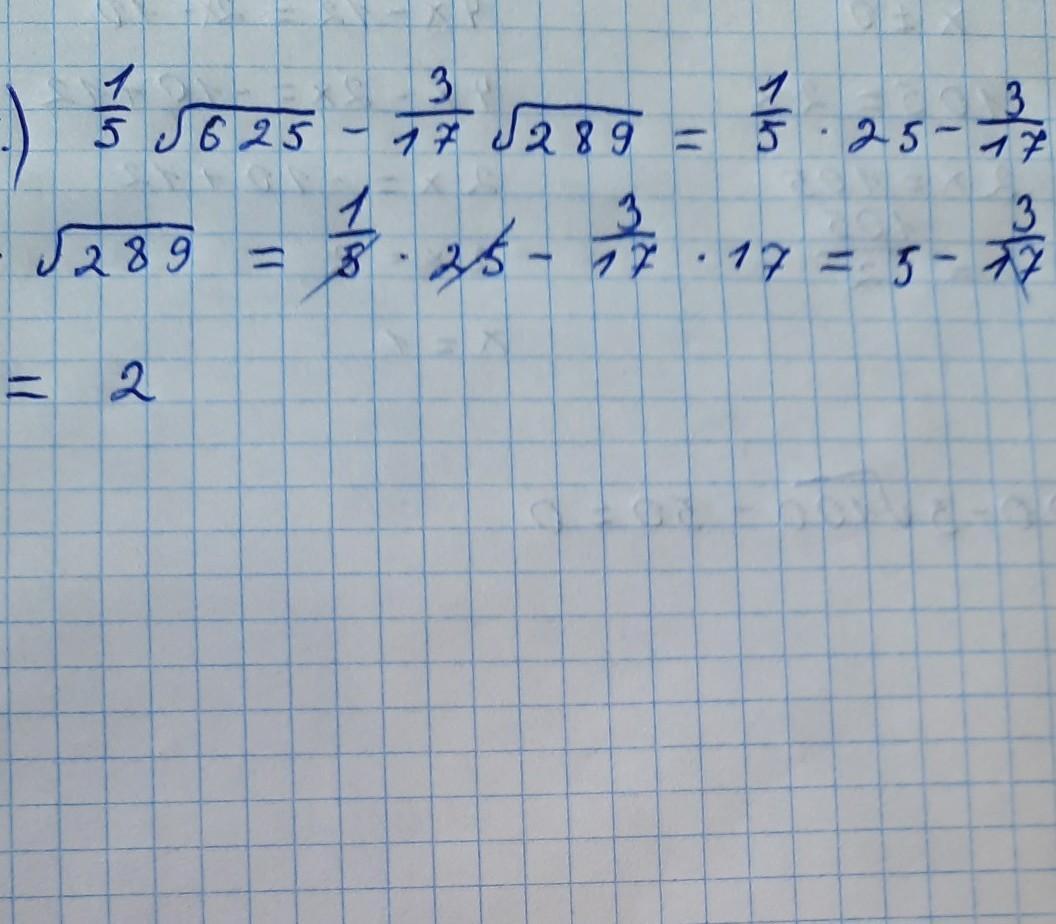 .) 1/5 √625 - 3/17 √289 = 1/5 · 25 - 3/17
· √289 = 1/5 · 25 - 3/17 · 17 = 5 - 3/17
= 2